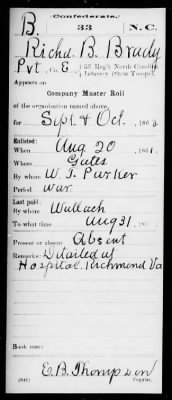 (Confederate.)
B. 33 N.C.
Richd B. Brady
Pvt, Co. E, 33 Reg't North Carolina
Infantry (State Troops)
Appears on
Company Muster Roll
of the organization named above,
for Sept & Oct, 1863
Enlisted:
When Aug 20, 1861.
Where Gates
By whom W. J. Parker
Period war
Last paid:
By whom Wallach
To what time Aug 31, 186
Present or absent Absent
Remarks: Detailed at
Hospital Richmond Va
Book mark:
E. B. Thompson
(642) Copyist.